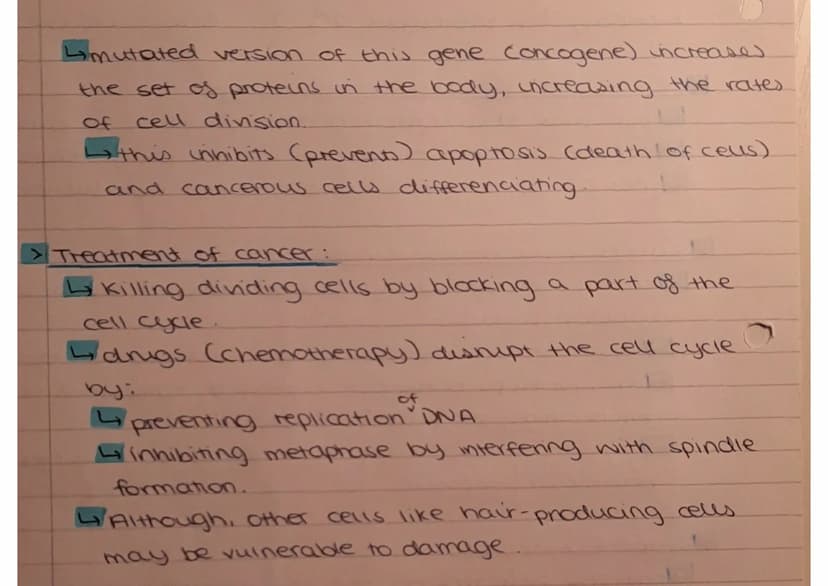 ↳mutated version of this gene (oncogene) increases
the set of proteins in the body, increasing the rates
of cell division.
↳this inhibits (prevents) apoptosis (death of cells)
and cancerous cells differenciating.
> Treatment of cancer:
↳ Killing dividing cells by blocking a part of the
cell cycle.
↳drugs (chemotherapy) disrupt the cell cycle
by:
↳ preventing replication of DNA
↳ inhibiting metaphase by interfering with spindle
formation.
↳ Although, other cells like hair-producing cells
may be vulnerable to damage.